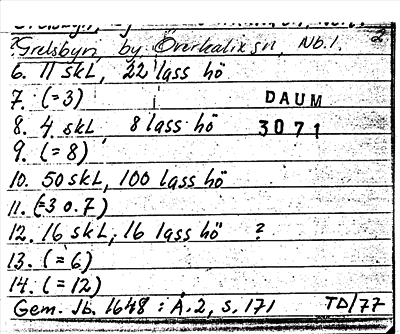 ?Grelsbyn, by Överkalix sn, Nb.l. 2
6. 11 skL, 22 lass hö
7. (=3)
DAUM
8. 4 skL, 8 lass hö
3071
9. (=8)
10. 50 skL, 100 lass hö
11. (=3 o. 7)
12. 16 skL, 16 lass hö ?
13. (=6)
14. (=12)
Gem. Jb. 1648 : A.2, s. 171 TD/77